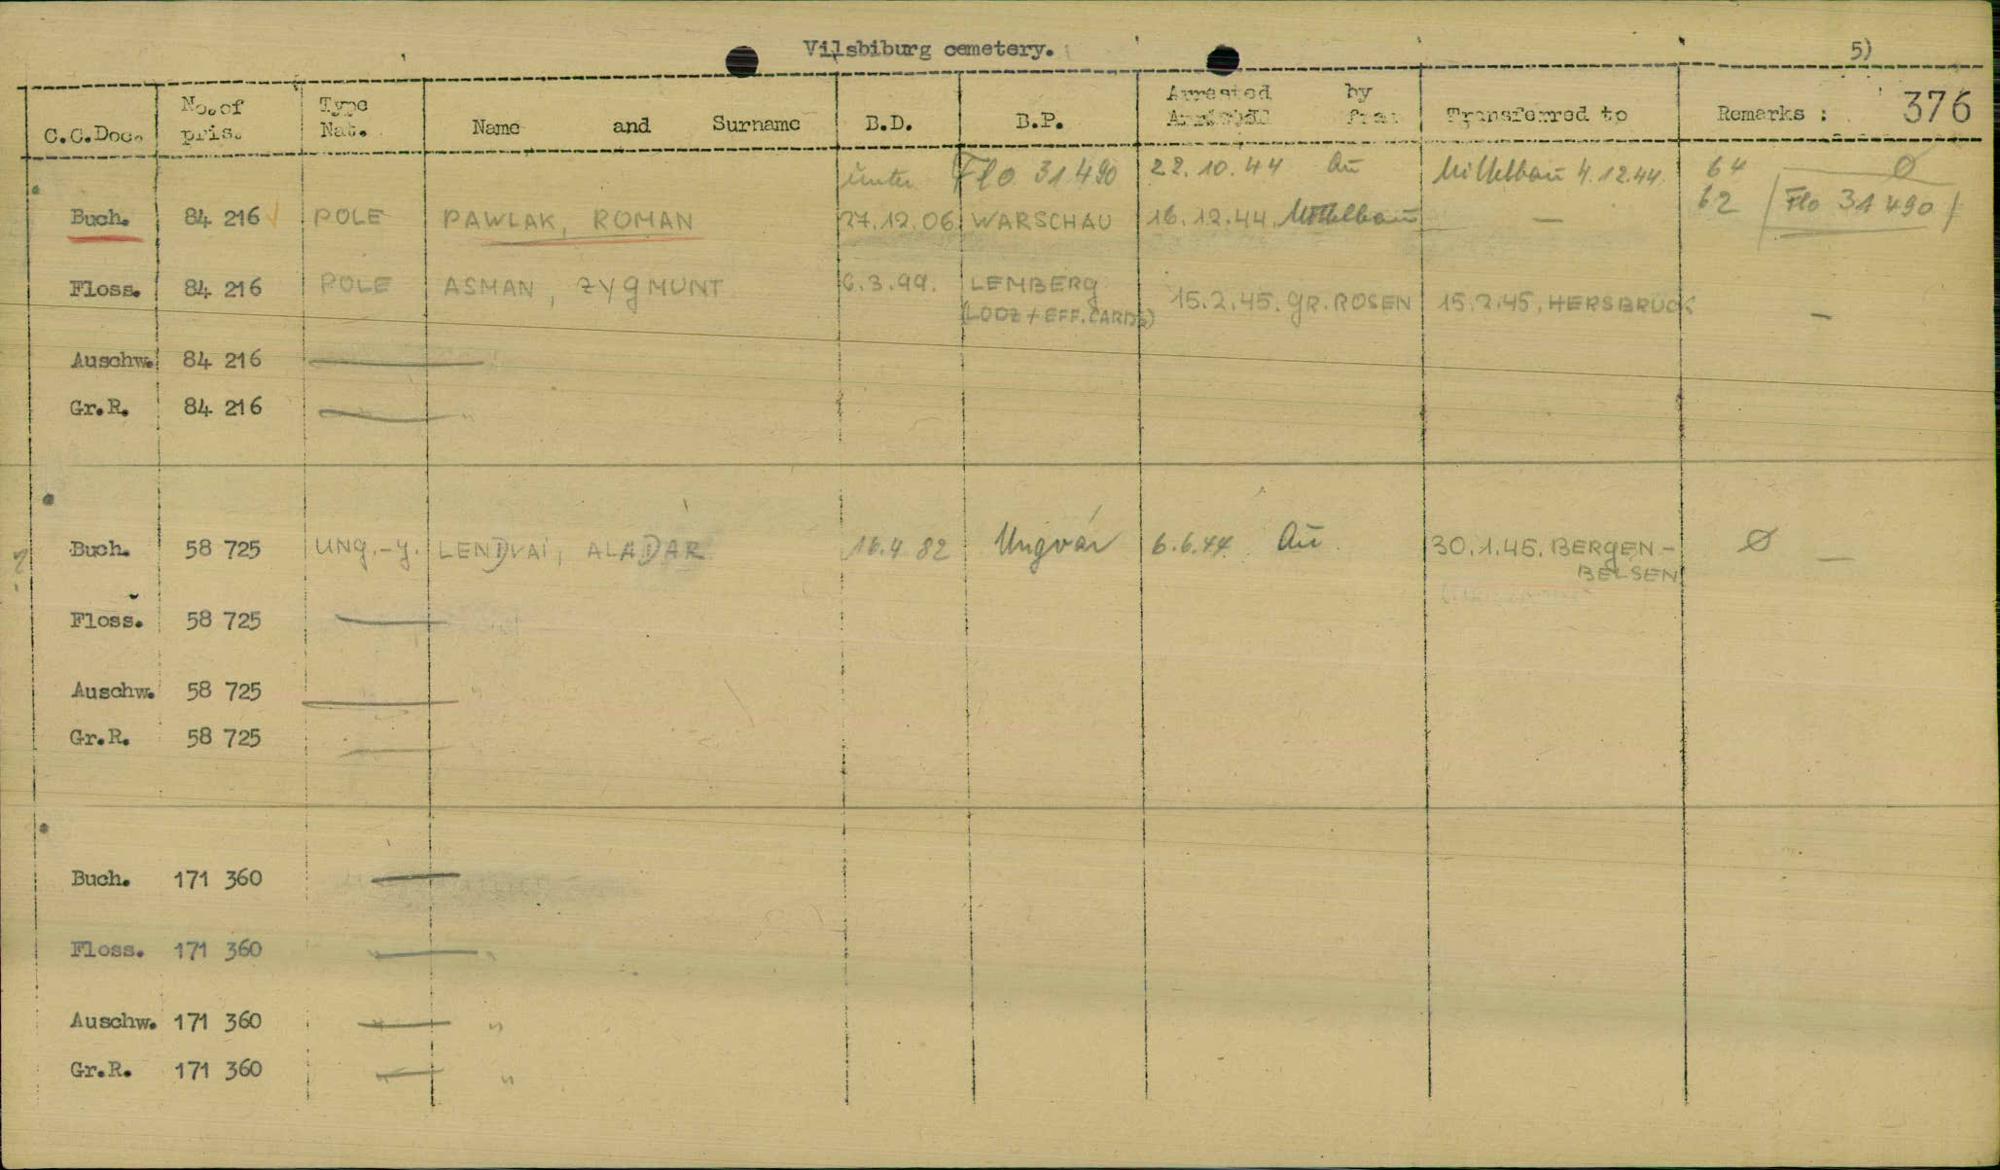 Vilsbiburg cemetery. 5)
C.C.Doc. No.of pris. Type Nat. Name and Surname B.D. B.P. Arrested by Arrived from Transferred to Remarks : 376
unter Flo 31490 22.10.44 Au Mittelbau 4.12.44 64 Ø
Buch. 84 216 POLE PAWLAK, ROMAN 27.12.06 WARSCHAU 16.12.44. Mittelbau — 62 / Flo 31490 /
Floss. 84 216 POLE ASMAN, ZYGMUNT 6.3.99. LEMBERG 15.2.45. GR. ROSEN 15.2.45, HERSBRUCK —
(LODZ + EFF. CARDS)
Auschw. 84 216 —
Gr.R. 84 216 — "
Buch. 58 725 UNG.-J. LENDVAI, ALADAR 16.4 82 Ungvár 6.6.44 Au 30.1.45. BERGEN- Ø —
BELSEN
Floss. 58 725 —
Auschw. 58 725 — "
Gr.R. 58 725 —
Buch. 171 360 —
Floss. 171 360 — "
Auschw. 171 360 — "
Gr.R. 171 360 — "